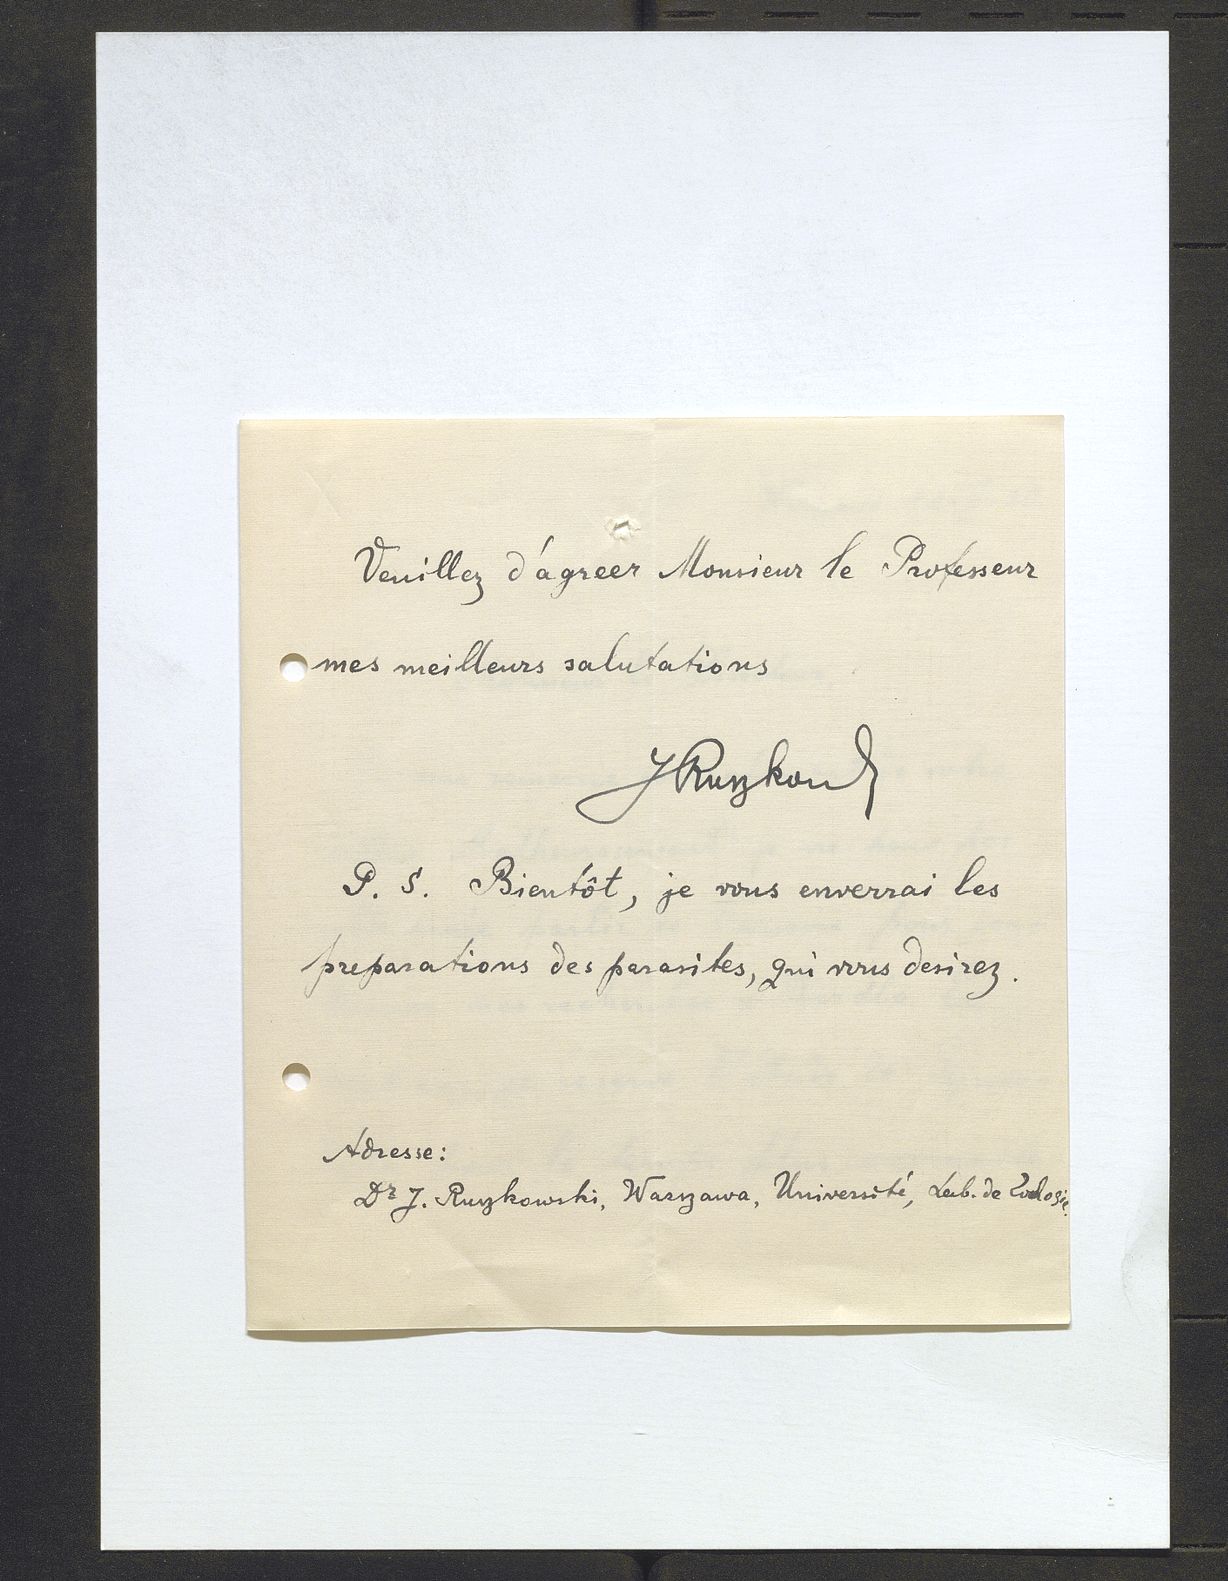 Veuillez d'agreer Monsieur le Professeur
mes meilleurs salutations
JRuszkowski
P. S. Bientôt, je vous enverrai les
preparations des parasites, qui vous desirez.
Adresse:
Dr J. Ruszkowski, Warszawa, Université, Lab. de Zoologie.